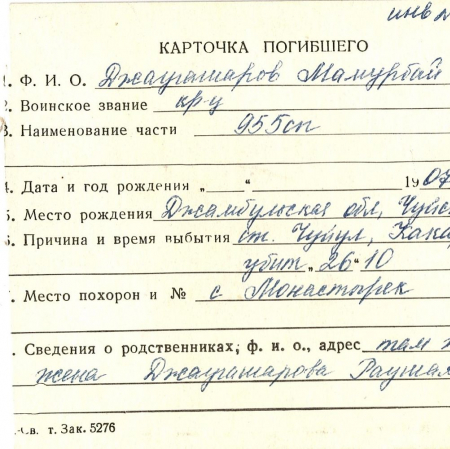 инв
КАРТОЧКА ПОГИБШЕГО
1. Ф. И. О. Джаугашаров Мамурбай
2. Воинское звание кр-ц
3. Наименование части 955сп
4. Дата и год рождения „ “ 1907
5. Место рождения Джамбульская обл, Чуйск
6. Причина и время выбытия ст. Чуйул,
убит „26“ 10
Место похорон и № с Монастырек
Сведения о родственниках, ф. и. о., адрес там ж
жена Джаугашарова
т. Зак. 5276